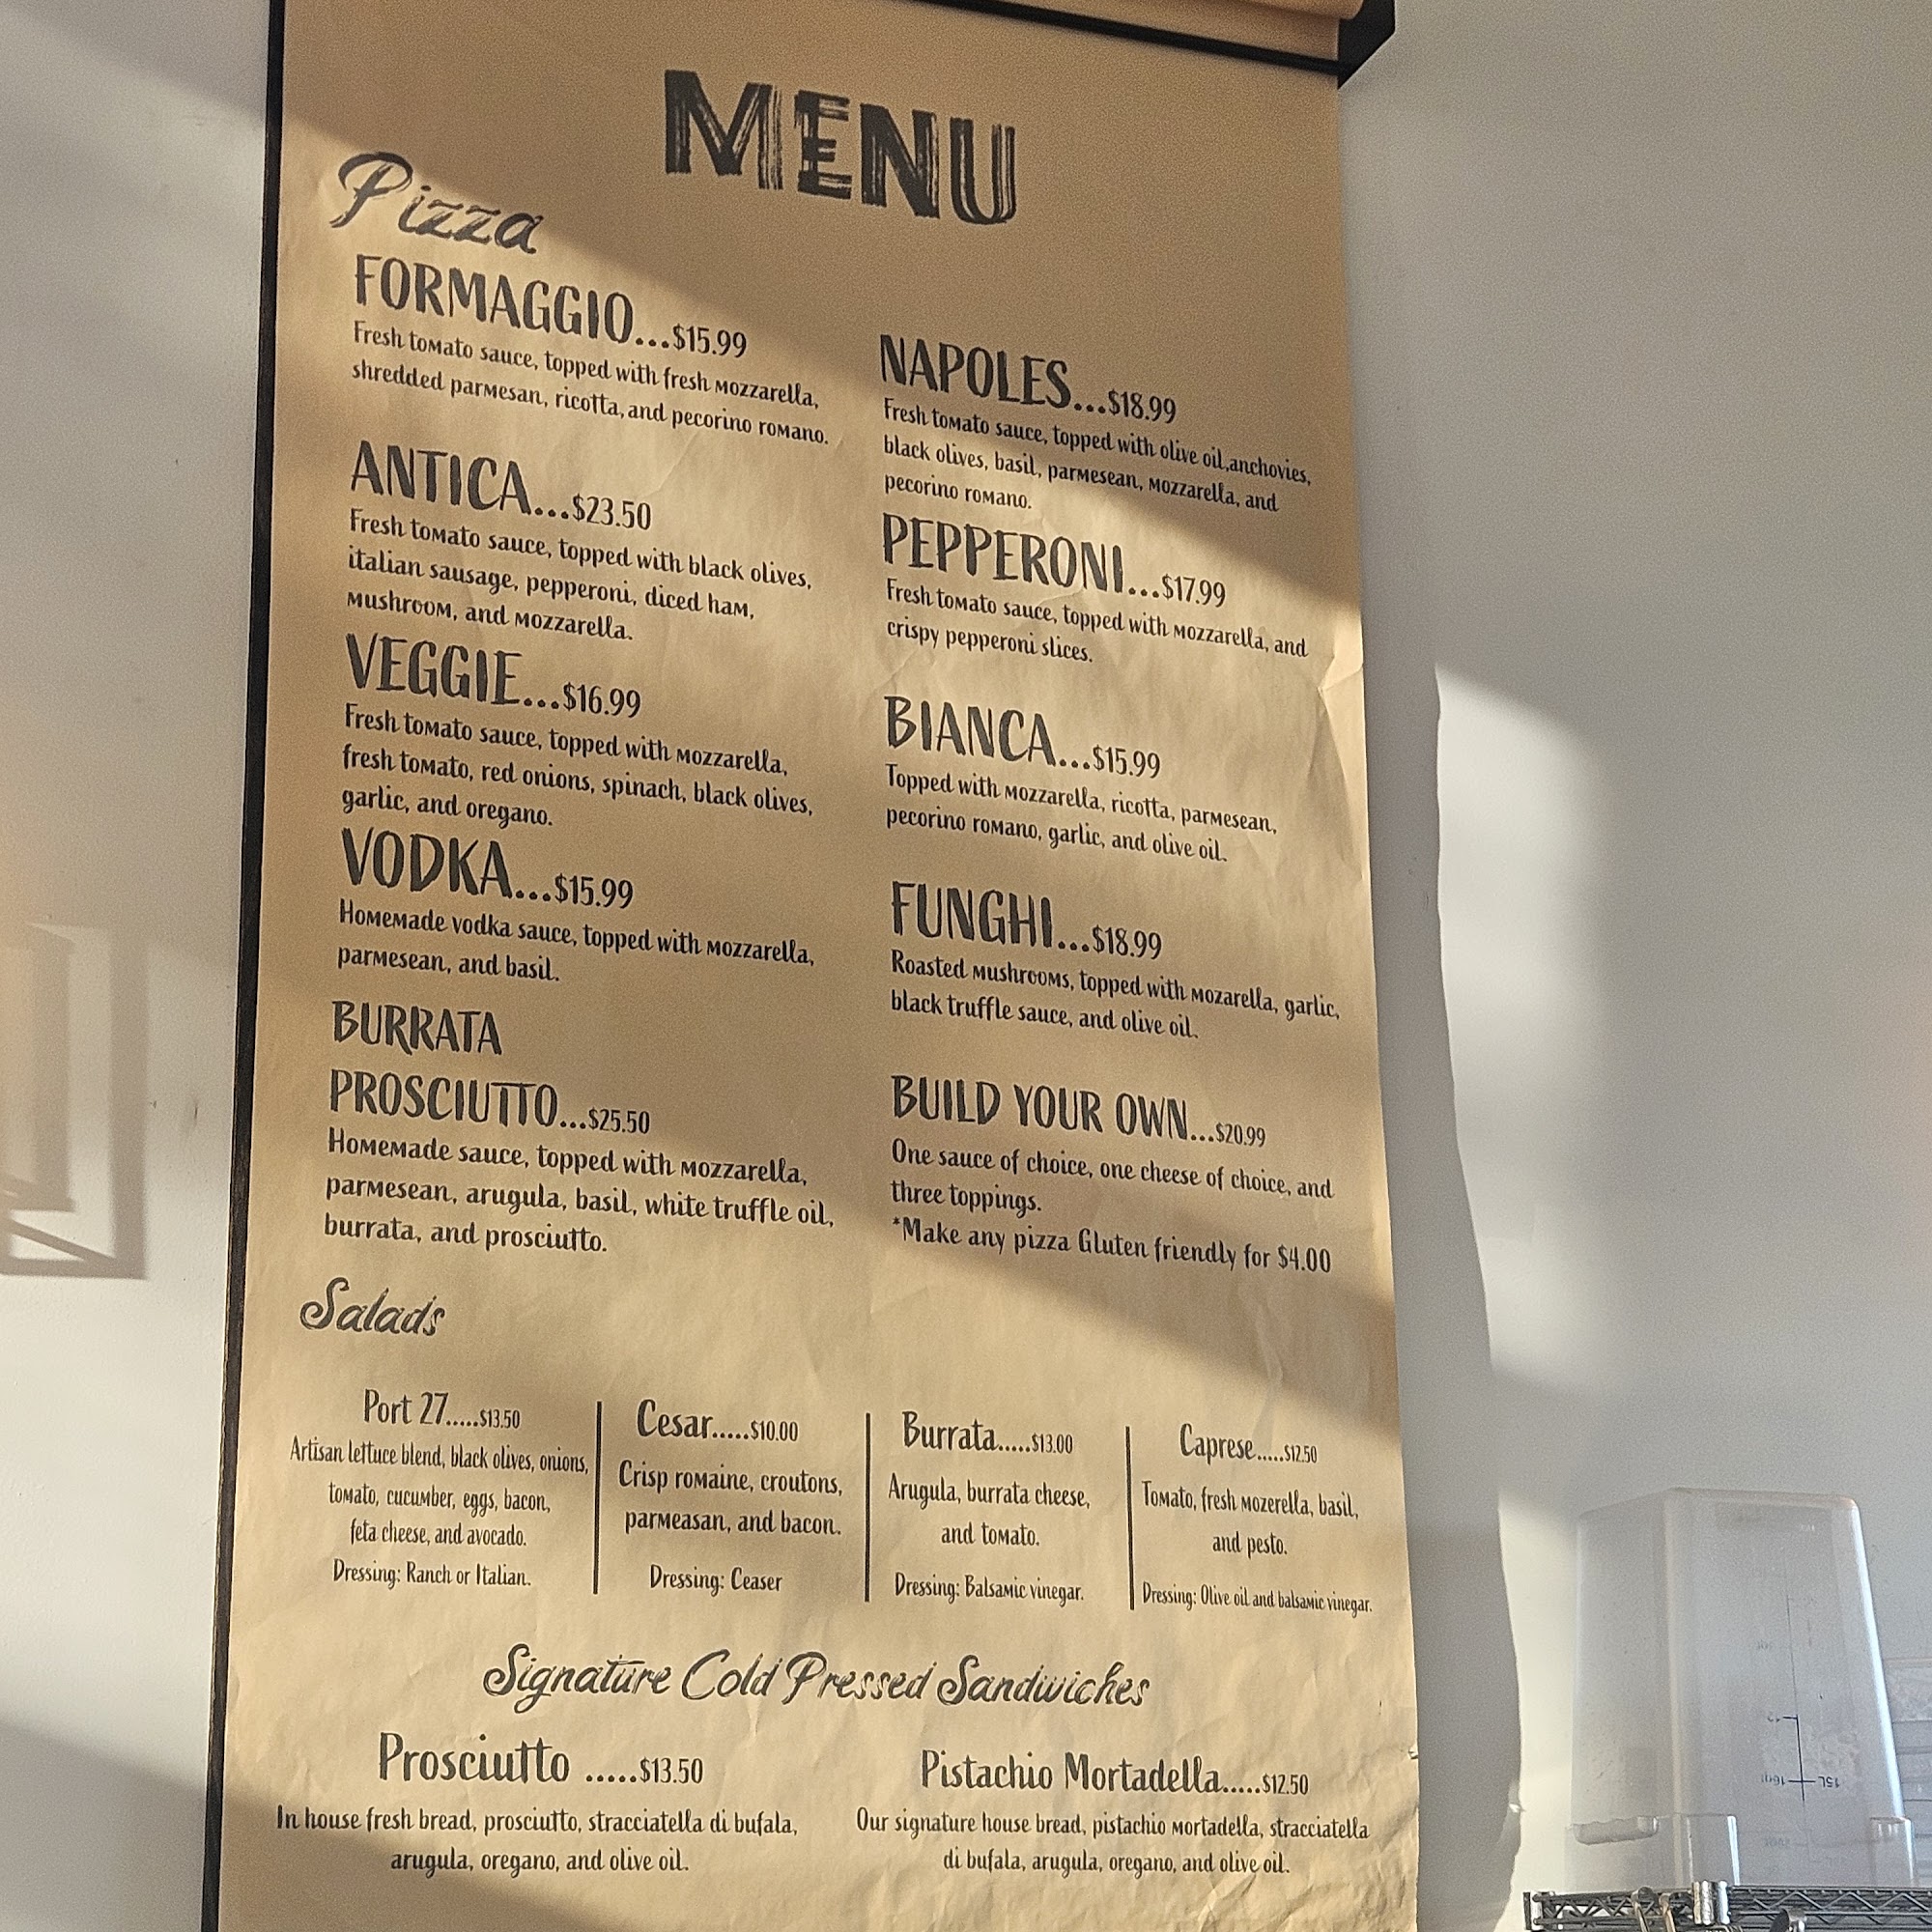 MENU
Pizza
FORMAGGIO...$15.99
Fresh tomato sauce, topped with fresh mozzarella,
shredded parmesan, ricotta, and pecorino romano.
ANTICA...$23.50
Fresh tomato sauce, topped with black olives,
italian sausage, pepperoni, diced ham,
mushroom, and mozzarella.
VEGGIE...$16.99
Fresh tomato sauce, topped with mozzarella,
fresh tomato, red onions, spinach, black olives,
garlic, and oregano.
VODKA...$15.99
Homemade vodka sauce, topped with mozzarella,
parmesean, and basil.
BURRATA
PROSCIUTTO...$25.50
Homemade sauce, topped with mozzarella,
parmesean, arugula, basil, white truffle oil,
burrata, and prosciutto.
NAPOLES...$18.99
Fresh tomato sauce, topped with olive oil,anchovies,
black olives, basil, parmesean, mozzarella, and
pecorino romano.
PEPPERONI...$17.99
Fresh tomato sauce, topped with mozzarella, and
crispy pepperoni slices.
BIANCA...$15.99
Topped with mozzarella, ricotta, parmesean,
pecorino romano, garlic, and olive oil.
FUNGHI...$18.99
Roasted mushrooms, topped with mozarella, garlic,
black truffle sauce, and olive oil.
BUILD YOUR OWN...$20.99
One sauce of choice, one cheese of choice, and
three toppings.
*Make any pizza Gluten friendly for $4.00
Salads
Port 27.....$13.50
Artisan lettuce blend, black olives, onions,
tomato, cucumber, eggs, bacon,
feta cheese, and avocado.
Dressing: Ranch or Italian.
Cesar.....$10.00
Crisp romaine, croutons,
parmeasan, and bacon.
Dressing: Ceaser
Burrata.....$13.00
Arugula, burrata cheese,
and tomato.
Dressing: Balsamic vinegar.
Caprese.....$12.50
Tomato, fresh mozerella, basil,
and pesto.
Dressing: Olive oil and balsamic vinegar.
Signature Cold Pressed Sandwiches
Prosciutto .....$13.50
In house fresh bread, prosciutto, stracciatella di bufala,
arugula, oregano, and olive oil.
Pistachio Mortadella.....$12.50
Our signature house bread, pistachio mortadella, stracciatella
di bufala, arugula, oregano, and olive oil.
15L